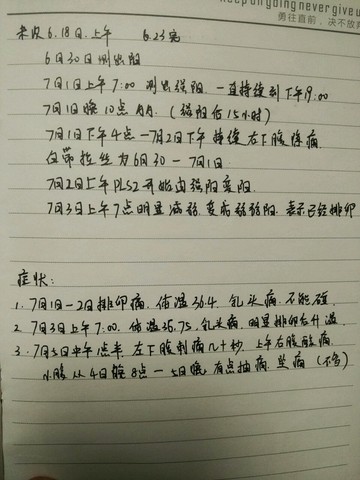 keep on going never give u
勇往直前,决不放
来收6.18日.上午 6.23完
6月30日测出阳
7月1日上午7:00 测出强阳.一直持续到下午19:00
7月1日晚10点内内.(强阳后15小时)
7月1日下午4点一7月2日下午 持续右下腹阵痛.
白带拉丝为6月30一7月1日
7月2日上午 强阳变阳.
7月3日上午7点明显减弱.变成弱弱阳.表示已经排卵
症状:
1.7月1日-2日排卵痛.体温36.4.乳头痛.不能碰.
2.7月3日上午7:00.体温36.75.乳头痛.明显排卵后升温
3.7月5日中午 左下腹刺痛几十秒.上午右腹酸痛.
小腹从4日晚8点一5日晚.有点抽痛.坠痛(不多)